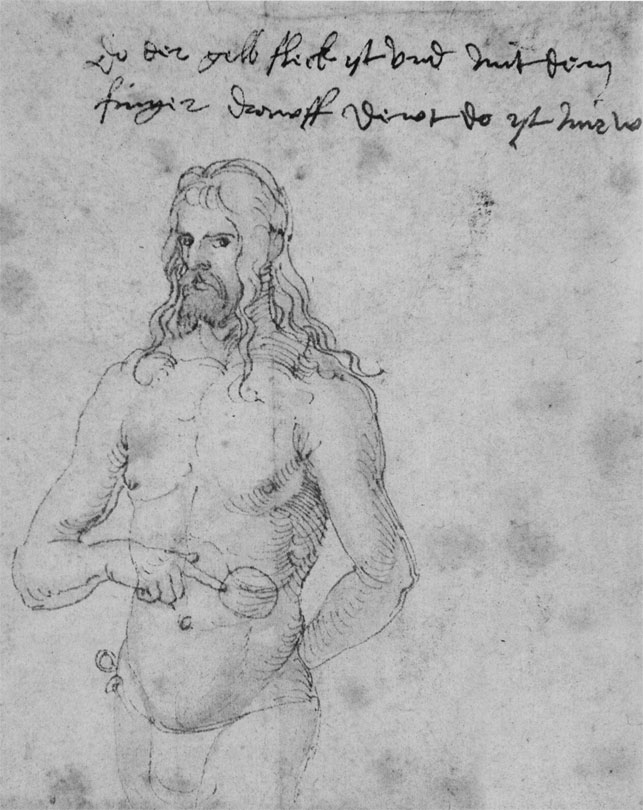 Do der gelb fleck yst vnd mit dem
finger drawff dewt do yst mir w